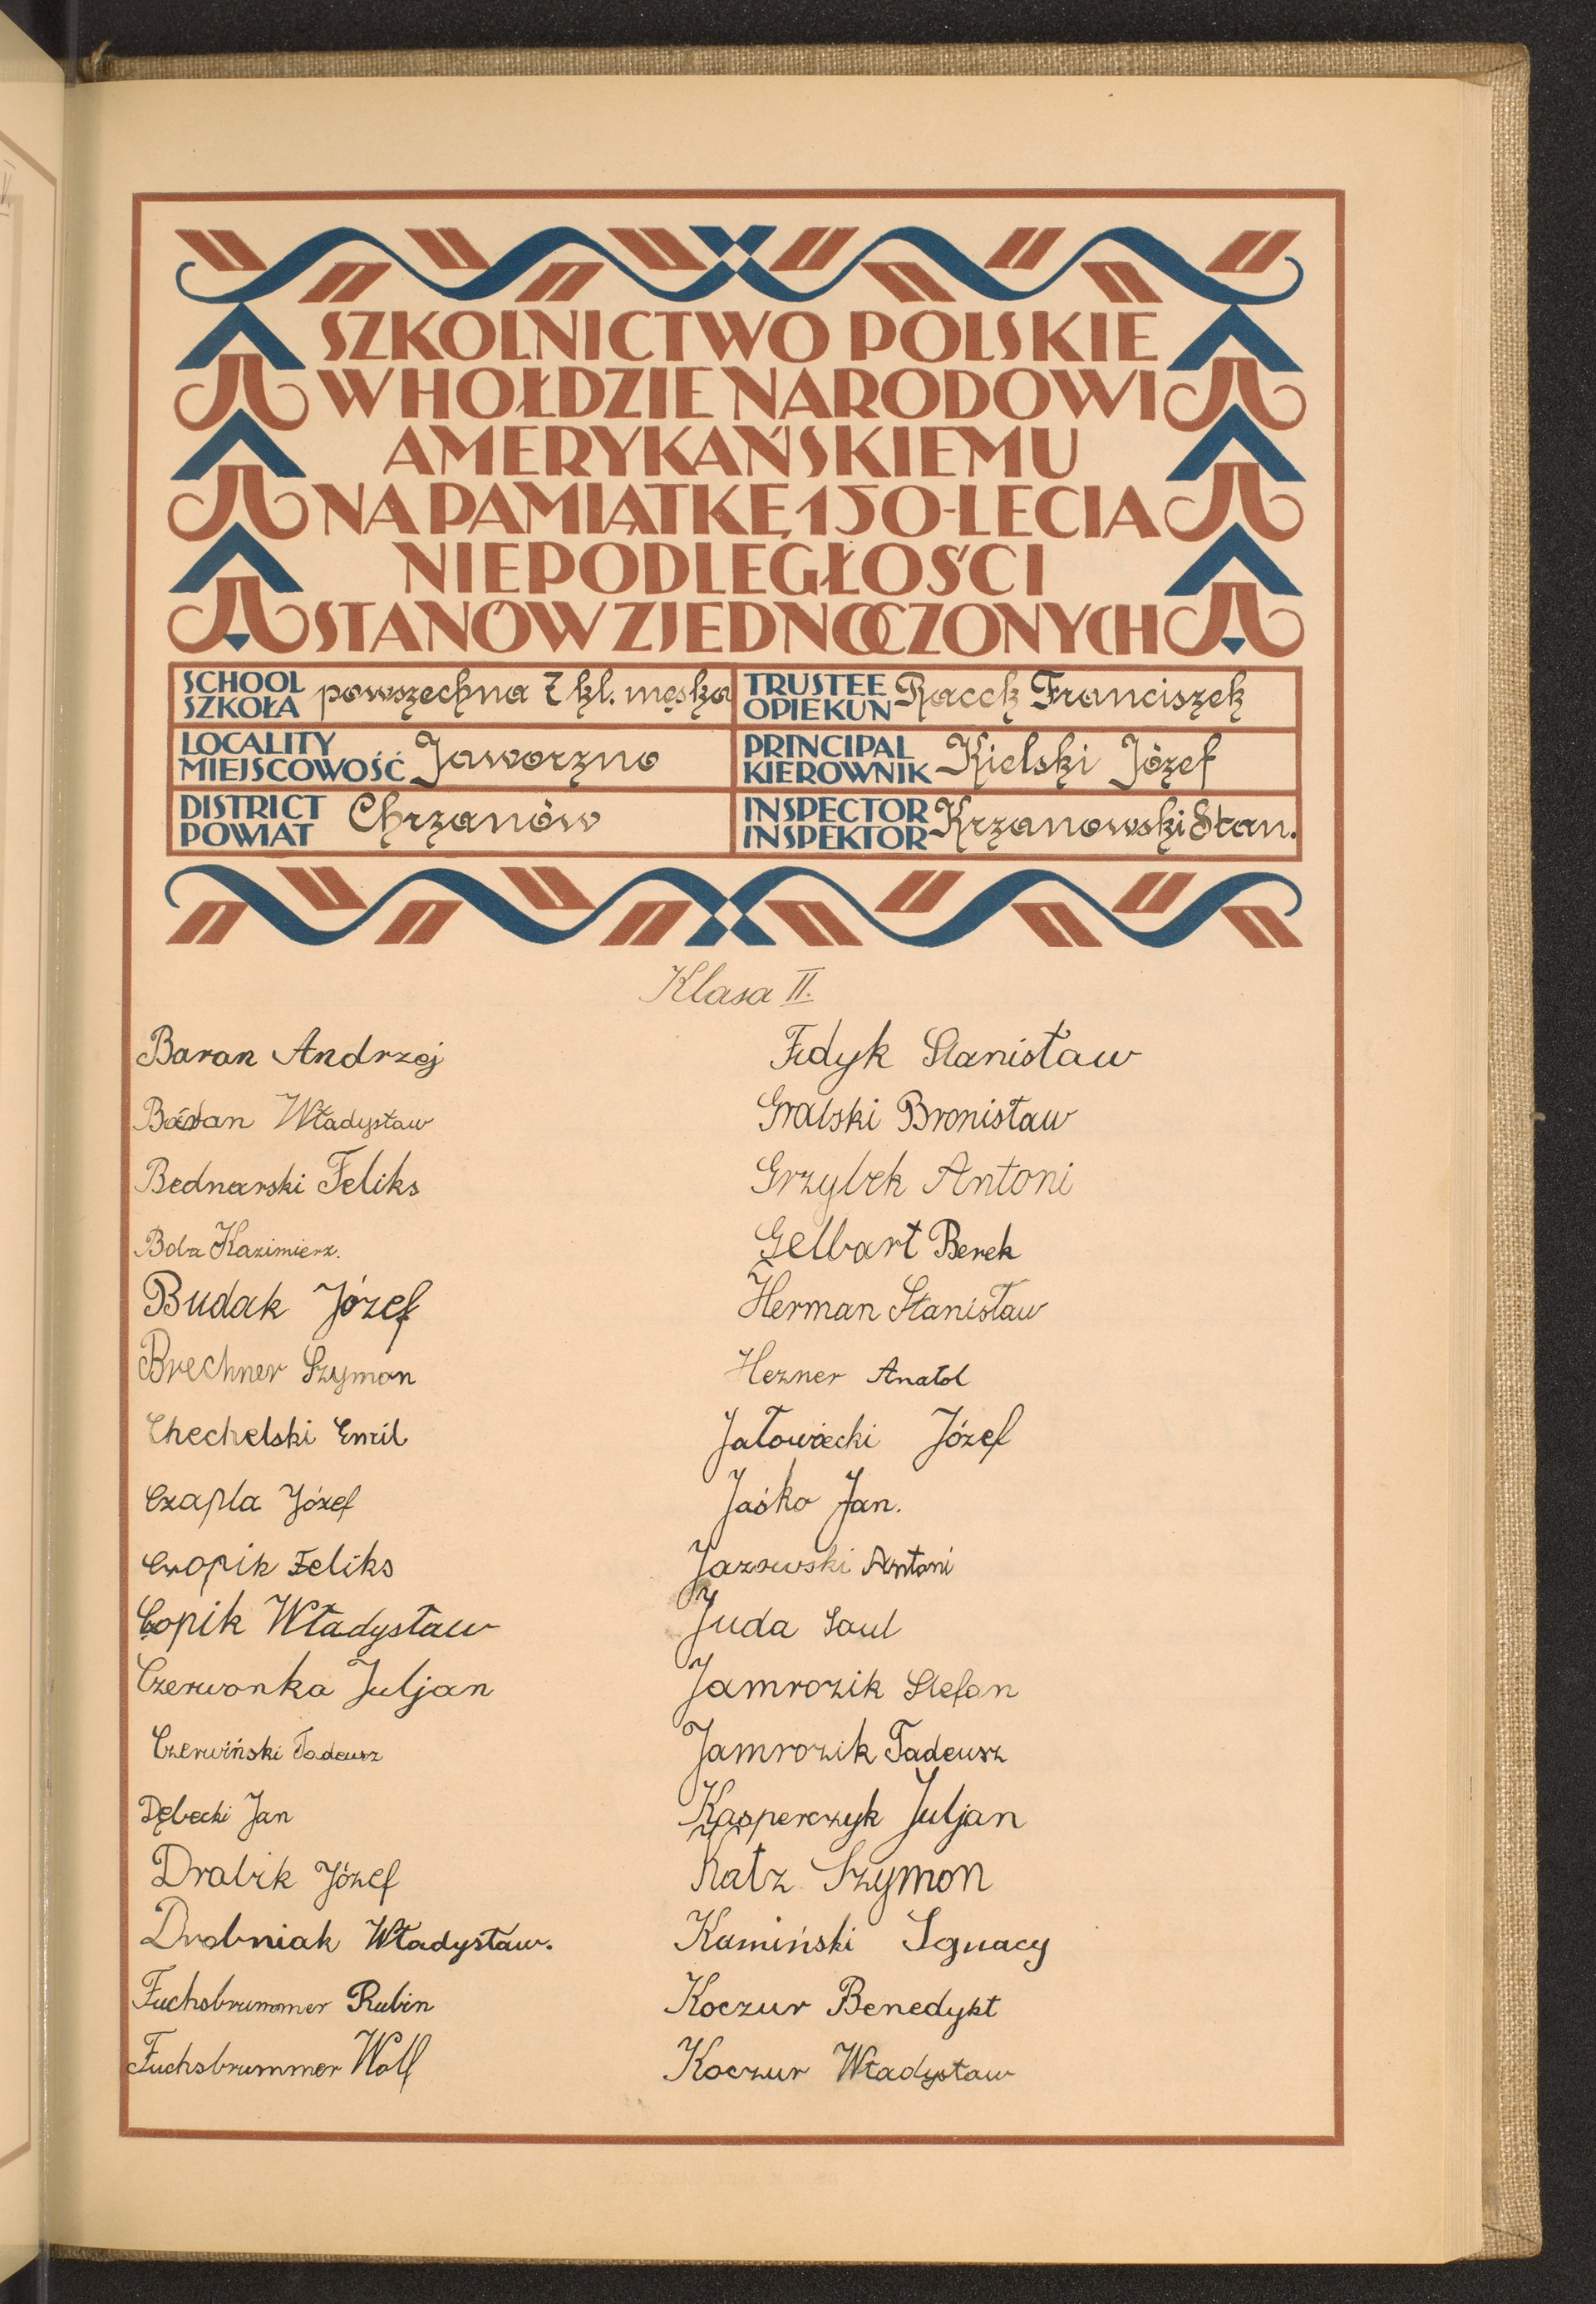 SZKOLNICTWO POLSKIE
W HOŁDZIE NARODOWI
AMERYKAŃSKIEMU
NA PAMIĄTKĘ 150-LECIA
NIEPODLEGŁOŚCI
STANÓW ZJEDNOCZONYCH
SCHOOL
SZKOŁA
powszechna 7 kl. męska
TRUSTEE
OPIEKUN
Racek Franciszek
LOCALITY
MIEJSCOWOŚĆ
Jaworzno
PRINCIPAL
KIEROWNIK
Kielski Józef
DISTRICT
POWIAT
Chrzanów
INSPECTOR
INSPEKTOR
Krzanowski Stan.
Klasa II.
Baran Andrzej
Władysław
Bednarski Feliks
Bola Kazimierz.
Budak Józef
Brechner Szymon
Chechelski Emil
Czapla Józef
Cropik Feliks
Copik Władysław
Czerwonka Juljan
Czerwiński Tadeusz
Dębecki Jan
Drabik Józef
Drobniak Władysław.
Fuchsbrummer Rubin
Fuchsbrummer Wolf
Fudyk Stanisław
Gralski Bronisław
Grzybek Antoni
Gelbart Berek
Herman Stanisław
Hezner Anatol
Jałowiecki Józef
Jaśko Jan.
Jazowski Antoni
Juda Saul
Jamrozik Stefan
Jamrozik Tadeusz
Kasperczyk Juljan
Katz Szymon
Kamiński Ignacy
Koczur Benedykt
Koczur Władysław